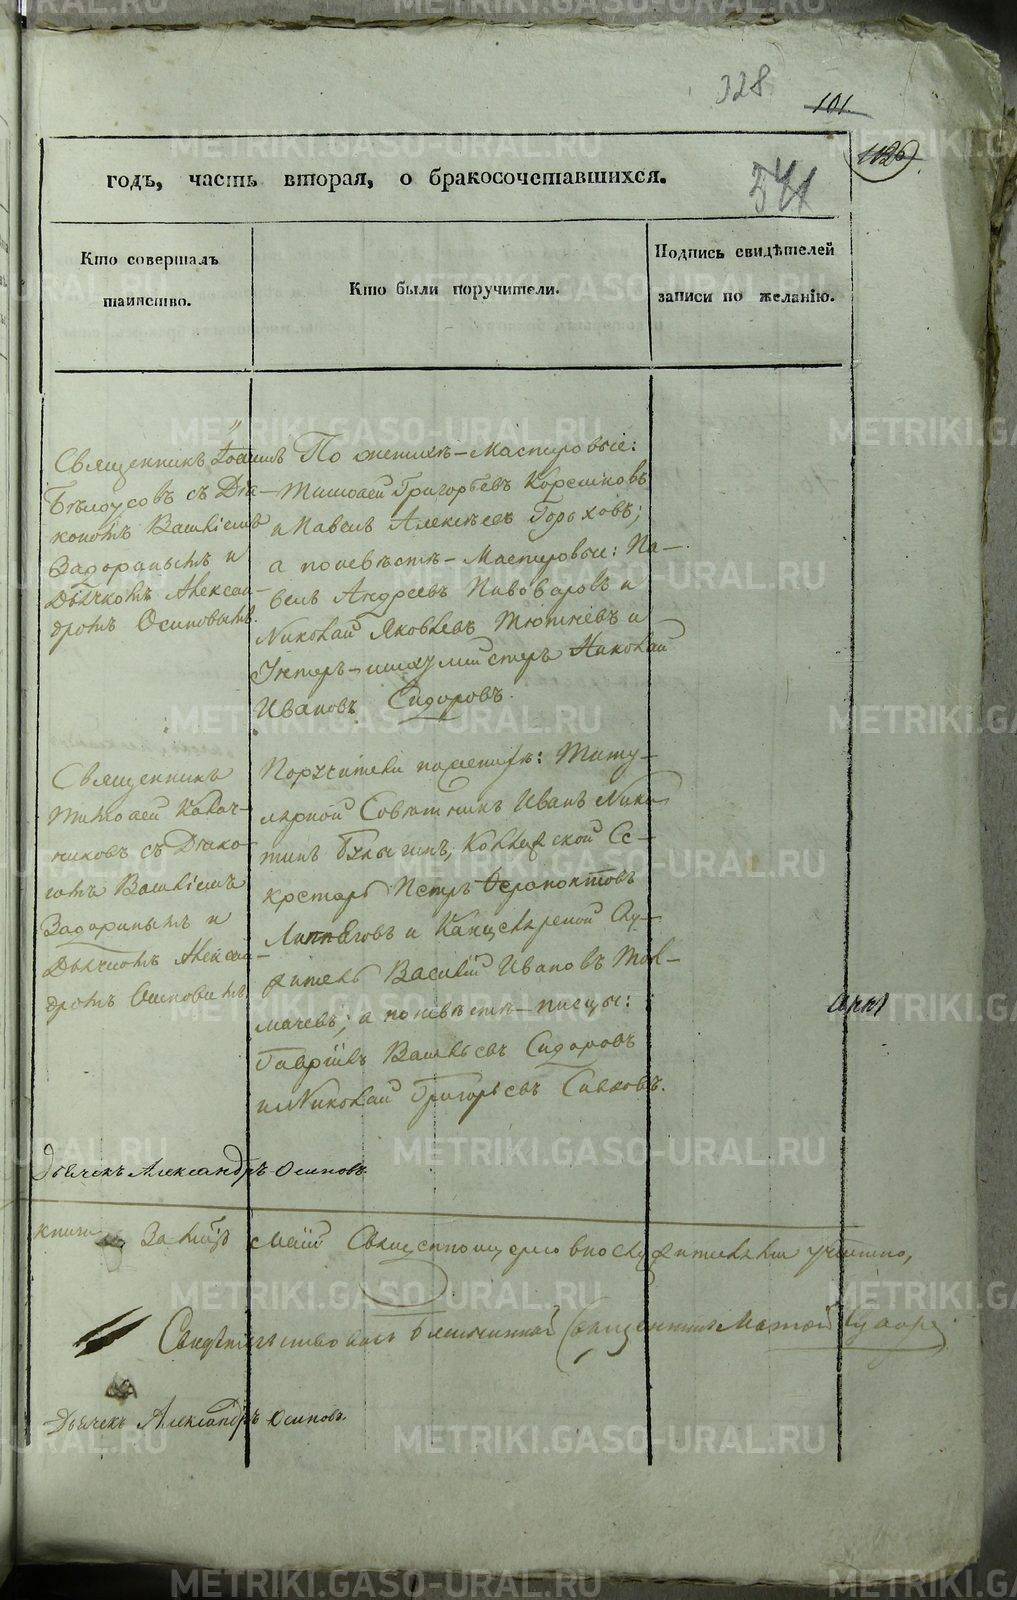 328
101
1126
541
годъ, часть вторая, о бракосочетавшихся.
Кто совершалъ таинство.
Кто были поручители.
Подпись свидѣтелей записи по желанію.
Священникъ Іоаннъ
Бѣлоусовъ съ Діа-
кономъ Василіемъ
Задоринымъ и
Дьячкомъ Алексан-
дромъ Осиповымъ.
По женихѣ - Мастеровые:
Тимофей Григорьевъ Корешковъ
и Павелъ Алексѣевъ Гороховъ;
а по невѣстѣ - Мастеровые: Па-
велъ Андреевъ Пивоваровъ и
Николай Яковлевъ Тютневъ и
Унтеръ-шихтмейстеръ Николай
Ивановъ Сидоровъ.
Священникъ
Тимофей Калач-
никовъ съ Діако-
номъ Василіемъ
Задоринымъ и
Дьячкомъ Алексан-
дромъ Осиповымъ
Поручители по женихѣ: Титу-
лярной Совѣтникъ Иванъ Ники-
тинъ Булыгинъ, Коллежской Се-
кретарь Петръ Ферапонтовъ
и Канцелярской Слу-
житель Василій Ивановъ Тол-
мачевъ; а по невѣстѣ - писцы:
Гавріилъ Васильевъ Сидоровъ
и Николай Григорьевъ Савковъ.
Дьячекъ Александръ Осиповъ
книги За Маій Священноцерковнослужительми учинено,
Свидѣтельствовалъ благочинной Священникъ
Дьячекъ Александръ Осиповъ.
METRIKI.GASO-URAL.RU